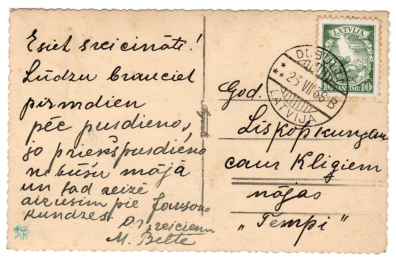 Esiet sveicināti!
Lūdzu brauciet
pirmdien
pēc pusdieno,
jo priekšpusdieno
nebūšu mājā
un tad reizē
aizeesim pie Jansona
kundzes.
Ar sveicienu
M. Belte
LATVIJA
10 SANTIMU 10
DUBULTI
23 VII 38 B
LATVIJA
God.
Liskopkungam
caur Kligiem
nójas
"Tempi"